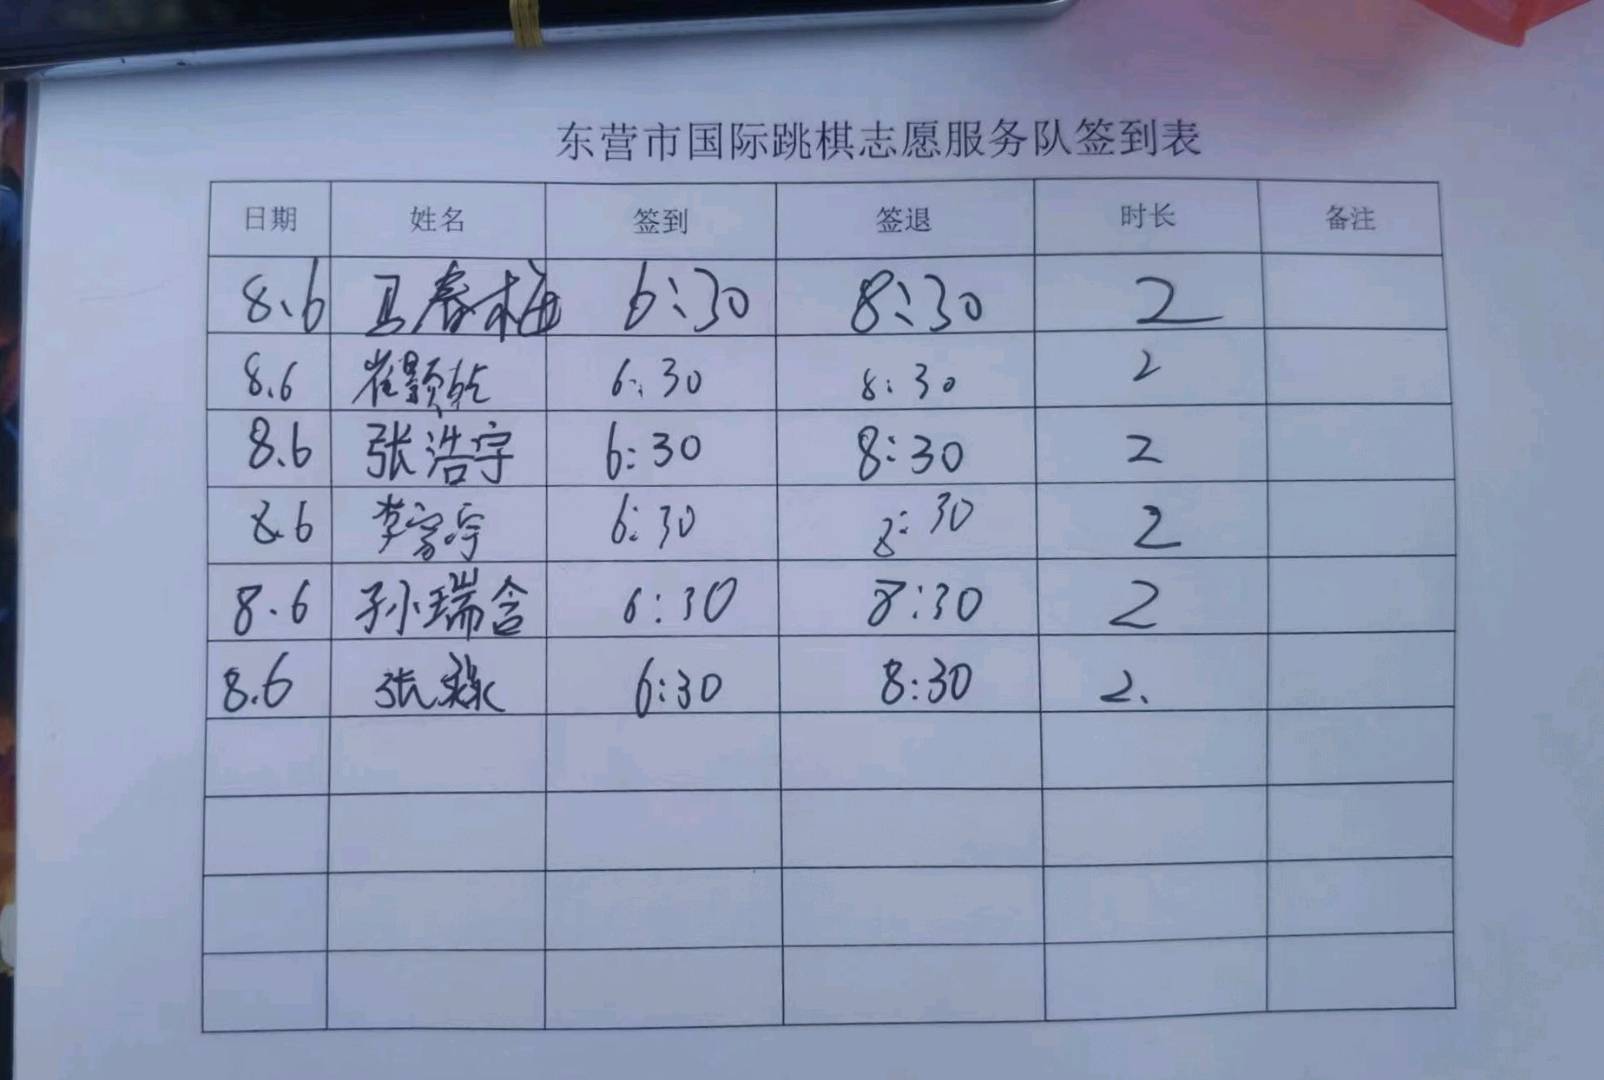 东营市国际跳棋志愿服务队签到表
日期 姓名 签到 签退 时长 备注
8.6 马春梅 6:30 8:30 2
8.6 崔颢乾 6:30 8:30 2
8.6 张浩宇 6:30 8:30 2
8.6 李家宇 6:30 8:30 2
8.6 孙瑞含 6:30 8:30 2
8.6 张 6:30 8:30 2.